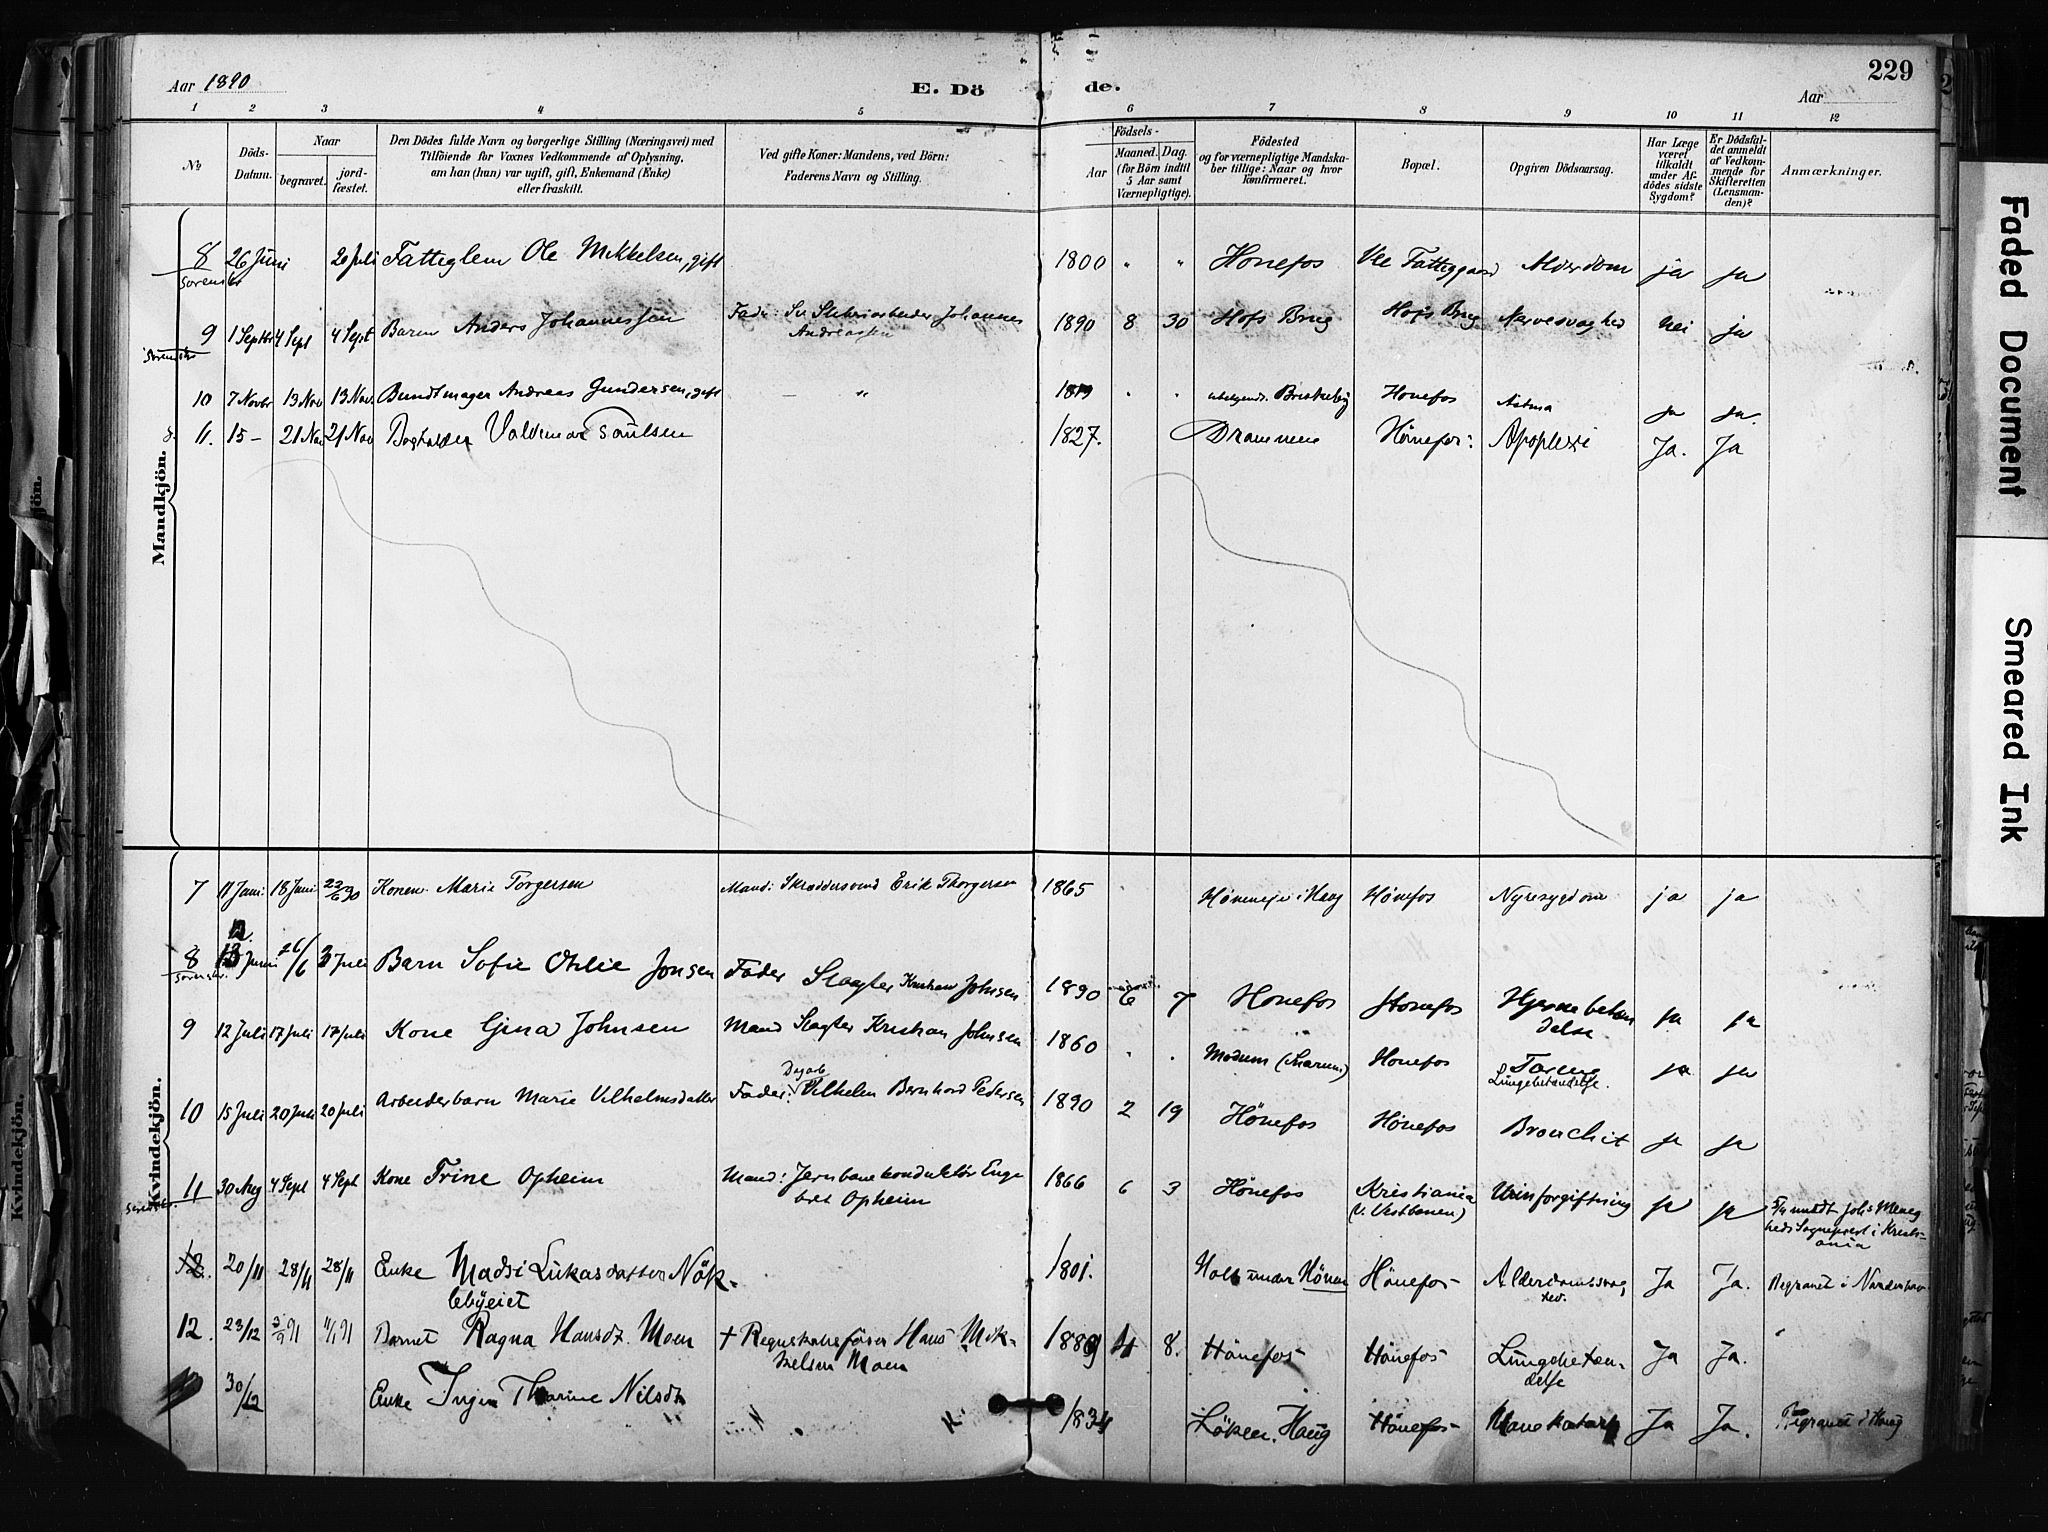 Aar 1890
E. Döde.
Aar
229
1 2 3 4 5 6 7 8 9 10 11 12
No
Döds-Datum.
Naar
begravet.
jord-fæstet.
Den Dödes fulde Navn og borgerlige Stilling (Næringsvei) med
Tilföiende for Voxnes Vedkommende af Oplysning,
om han (hun) var ugift, gift, Enkemand (Enke)
eller fraskilt.
Ved gifte Koner: Mandens, ved Börn:
Faderens Navn og Stilling.
Födsels-
Aar
Maaned. Dag.
(for Börn indtil
5 Aar samt
Værnepligtige).
Födested
og for værnepligtige Mandska-
ber tillige: Naar og hvor
konfirmeret.
Bopæl.
Opgiven Dödsaarsag.
Har Læge
været
tilkaldt
under Af-
dödes sidste
Sygdom?
Er Dödsfal-
det anmeldt
af Vedkom-
mende for
Skifteretten
(Lensman-
den)?
Anmærkninger.
Mandkjön.
8 26 Juni 20 Juli Fattiglem Ole Mikkelsen, gift 1800 " " Hønefos Fattiggaard Alderdom ja ja
9 1 Septbr 4 Sept 4 Sept Barn Anders Johannessen Fader: Johannes 1890 8 30 Hofs Brug Hofs Brug Nervesvaghed Nei ja
Andreassen
10 7 Novbr 13 Nov 13 Nov. Bundtmager Andreas Gundersen, gift — " 1819 . . Hønefos Astma ja ja.
11. 15 – 21 Nov 21 Nov Bogholder Valdemar Paulsen 1827. Drammen Hønefos: Apoplexi Ja. Ja
Kvindekjön.
7 11 Juni 18 Juni 22/6 90 Konen Marie Torgersen Mand: Skræddersvend Erik Thorgersen 1865 Haug Hønefos Nyresygdom ja ja
12
8 Juni 26/6 3 Juli Barn Sofie Othilie Jonsen Fader Slagter Kristian Johnsen 1890 6 7 Hønefos Hønefos Hjernebetæn ja ja
delse
9 12 Juli 17 Juli 17 Juli Kone Gina Johnsen Mand Slagter Kristian Johnsen 1860 . . Modum (Snarum) Hønefos Tæring ja ja
Lungebetændelse.
10 15 Juli 20 Juli 20 Juli Arbeiderbarn Marie Vilhelmsdatter Fader: Vilhelm Bernhard Pedersen 1890 2 19 Hønefos Hønefos Bronchit ja ja
11 30 Aug 4 Sept 4 Sept Kone Trine Opheim Mand: Jernbanekonduktör Enge 1866 6 3 Hønefos Kristiania Urinforgiftning ja ja
bret Opheim
(v. Vestbanen)
hedsSognepræst i Kristi-
ania
12. 20/11 28/11 28/11 Enke Madsi Lukasdatter Nök- 1801. under Hönen Hönefos Alderdomssvag Ja Ja. Begravet i Norderhov
lebyeiet
hed.
12. 23/12 2/1 91 11/1 91 Barnet Ragna Hansdt. Moen + Regnskabsfører Hans Mik- 1889 4 8. Hönefos Hönefos Lungebetæn- Ja Ja.
kelsen Moen
delse
30/12 Enke Inger Thorine Nilsdt. 1834 Löken. Haug Hönefos Mavekatarh Ja Ja. Begravet i Haug
Faded Document
Smeared Ink
Kvindekjön.